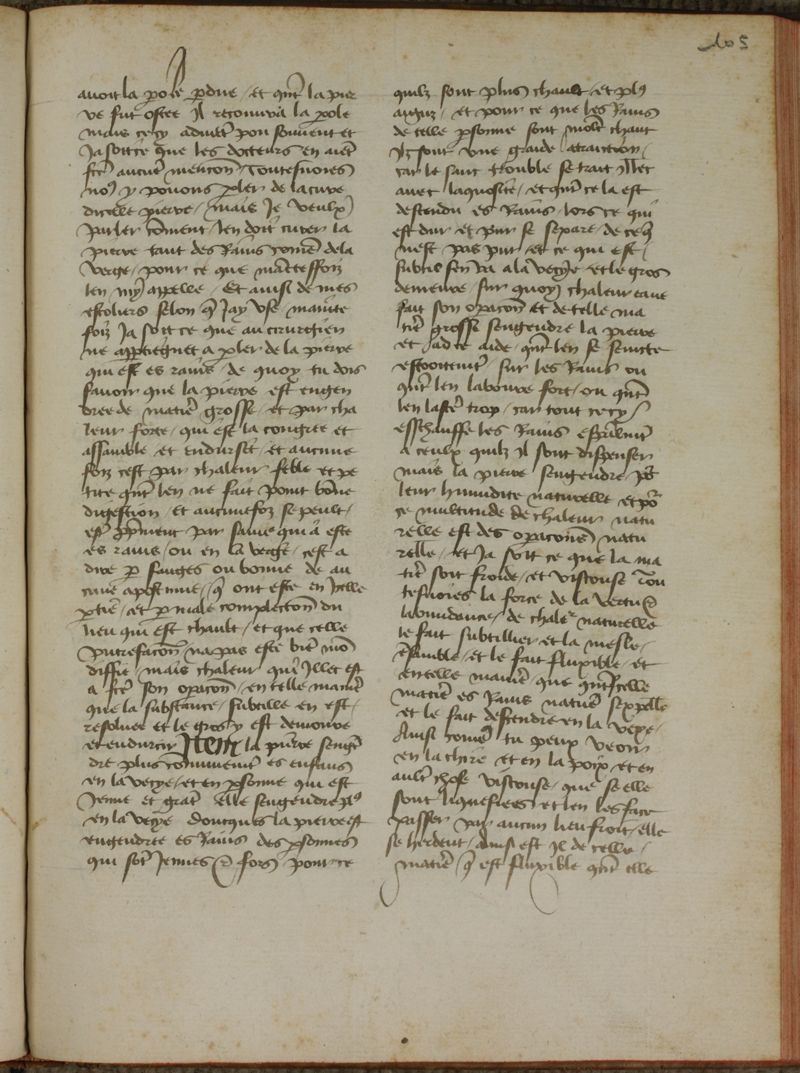 105
avoit la pole pdue / et qnt la pier
re fut ostee Il recouvra la pole
mais cecy advient pou souvent et
Ja soit ce que les docteurs en aiet
fet aucune mencon Toutesvoies
no9 y pouons pler de la cure
dicelle pierre / mais Je veulx
parler coment len doit curer la
pierre tant des Rains come dela
verge / pour ce que maintesfoiz
len my appelle / Et ainsi de mes
escoliers selon q Jay use mainte
foiz Ja soit ce que au cirurgien
ne apptiegnet a pler de la pierre
qui est es rains / de quoy tu dois
savoir que la pierre est engen
dree de matiere grosse / et par cha
leur forte / qui est la congree et
assamble et endurset / et aucune
foiz cest par chaleur feble et pe
tite qnt len ne fait point bone
digestion / et aucunefoiz se peult /
est pprement par sanie qui a este
es rains / ou en la verge / cest a
dire p fanges ou boune de au
cune apostume / q ont este en Icelle
ptie / et p male complecton du
lieu qui est chault / et que celle
putrefacon na pas este bien mon
diffie / mais chaleur qui Illec est
a fet son opacon / en telle maniere
que la substance / subtille en est /
resolue et le gros y est demoure
et endurcy Item la pierre sengen
dre plus comunement es enfans
en la vecye / et en psonne qui est
Jenne et grat elle sengendre pl9
en la vecye doncques la pierre est
engendree es Rains des psonnes
qui sont Jennes et fors pour ce
quilz sont plus chault / et pl9
aiguz / et pour ce que les Rains
de telle psonne sont molt chaut
Ilz font une grande attraction /
car le sanc trouble se trait Illec
avec laquosite / et qnt cela est
descendu es Rains / lors ce qui
est dur et pur se separe de ce q
nest pas pur / et ce qui est /
subtil sen va ala vecye et le gros
demeure / sur quoy chaleur eaue
fait son opacon et de telle ma
tiere grosse sengendre la pierre
et ad ce aide / qnt len se saincte
estroittement / sur les Rains ou
qnt len laboure fort / ou qnt
len laste trop / car tout cecy /
esschauffe les Rains
a ceulx quilz Il sont disposer
mais la pierre sengendre ps
leur humidite naturelle et po
ce multitude de chaleur natu
relle est des opacons natu
relle / et Ja soit ce que la ma
tiere soit froide / et viscouse Tou
tesvoies la force de la vertu et
labondence / de chaleur naturelle
le fait subtillier et la mesle /
ensamble / et le fait fluxible / et
en telle maniere que qnt Icelle
matiere es Rains nature sexpelle
et le fait descendre en la vexe /
Ainsi come tu peux veoir
en la chire et en la poix et en
aultre chose viscouse / que se elle
sont liquefiees et len les face
passer par aucun lieu froit / elle
se herdent / Ainsi est Il de celle /
matiere q est fluxible qnt elle